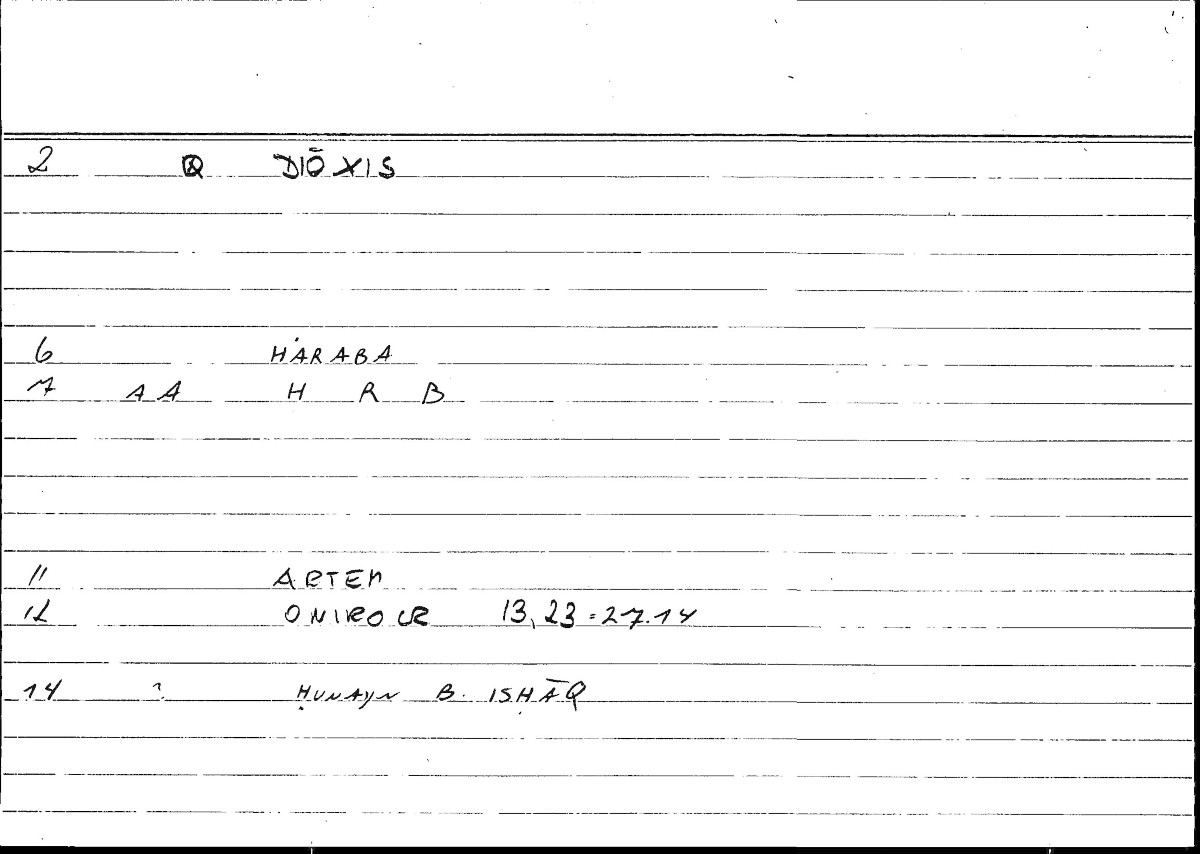 2 Q DIŌXIS
6 HARABA
7 AA H R B
11 ARTEM
12 ONIROCR 13,23=27.14
14 ? ḤUNAYN B. ISḤĀQ